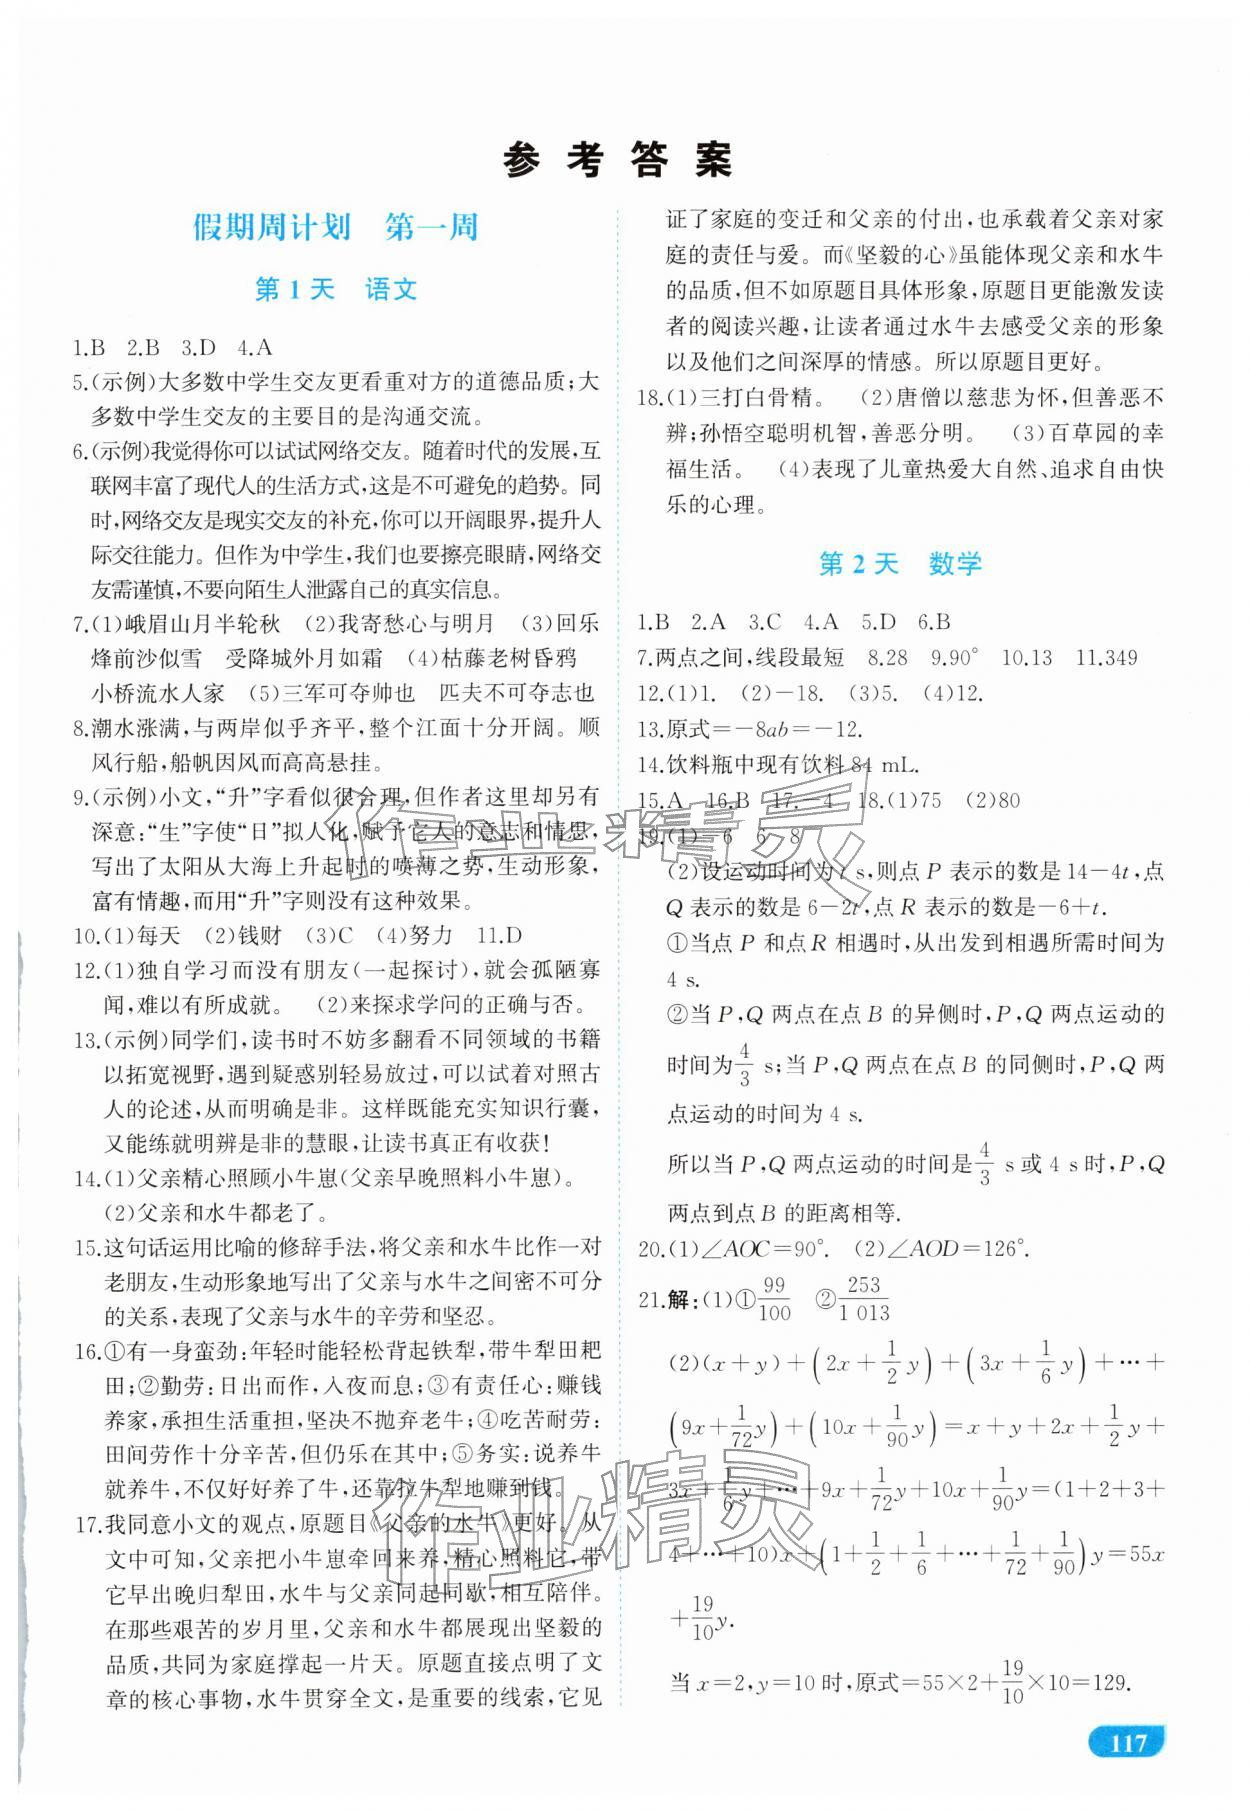 参考答案
假期周计划 第一周
第1天 语文
1.B 2.B 3.D 4.A
5.(示例)大多数中学生交友更看重对方的道德品质;大
多数中学生交友的主要目的是沟通交流。
6.(示例)我觉得你可以试试网络交友。随着时代的发展,互
联网丰富了现代人的生活方式,这是不可避免的趋势。同
时,网络交友是现实交友的补充,你可以开阔眼界,提升人
际交往能力。但作为中学生,我们也要擦亮眼睛,网络交
友需谨慎,不要向陌生人泄露自己的真实信息。
7.(1)峨眉山月半轮秋 (2)我寄愁心与明月 (3)回乐
烽前沙似雪 受降城外月如霜 (4)枯藤老树昏鸦
小桥流水人家 (5)三军可夺帅也 匹夫不可夺志也
8.潮水涨满,与两岸似乎齐平,整个江面十分开阔。顺
风行船,船帆因风而高高悬挂。
9.(示例)小文,“升”字看似很合理,但作者这里却另有
深意:“生”字使“日”拟人化,赋予它人的意志和情思,
写出了太阳从大海上升起时的喷薄之势,生动形象,
富有情趣,而用“升”字则没有这种效果。
10.(1)每天 (2)钱财 (3)C (4)努力 11.D
12.(1)独自学习而没有朋友(一起探讨),就会孤陋寡
闻,难以有所成就。 (2)来探求学问的正确与否。
13.(示例)同学们,读书时不妨多翻看不同领域的书籍
以拓宽视野,遇到疑惑别轻易放过,可以试着对照古
人的论述,从而明确是非。这样既能充实知识行囊,
又能练就明辨是非的慧眼,让读书真正有收获!
14.(1)父亲精心照顾小牛崽(父亲早晚照料小牛崽)。
(2)父亲和水牛都老了。
15.这句话运用比喻的修辞手法,将父亲和水牛比作一对
老朋友,生动形象地写出了父亲与水牛之间密不可分
的关系,表现了父亲与水牛的辛劳和坚忍。
16.①有一身蛮劲:年轻时能轻松背起铁犁,带牛犁田耙
田;②勤劳:日出而作,入夜而息;③有责任心:赚钱
养家,承担生活重担,坚决不抛弃老牛;④吃苦耐劳:
田间劳作十分辛苦,但仍乐在其中;⑤务实:说养牛
就养牛,不仅好好养了牛,还靠拉牛犁地赚到钱。
17.我同意小文的观点,原题目《父亲的水牛》更好。从
文中可知,父亲把小牛崽牵回来养,精心照料它,带
它早出晚归犁田,水牛与父亲同起同歇,相互陪伴。
在那些艰苦的岁月里,父亲和水牛都展现出坚毅的
品质,共同为家庭撑起一片天。原题直接点明了文
章的核心事物,水牛贯穿全文,是重要的线索,它见
证了家庭的变迁和父亲的付出,也承载着父亲对家
庭的责任与爱。而《坚毅的心》虽能体现父亲和水牛
的品质,但不如原题目具体形象,原题目更能激发读
者的阅读兴趣,让读者通过水牛去感受父亲的形象
以及他们之间深厚的情感。所以原题目更好。
18.(1)三打白骨精。 (2)唐僧以慈悲为怀,但善恶不
辨;孙悟空聪明机智,善恶分明。 (3)百草园的幸
福生活。 (4)表现了儿童热爱大自然、追求自由快
乐的心理。
第2天 数学
1.B 2.A 3.C 4.A 5.D 6.B
7.两点之间,线段最短 8.28 9.90° 10.13 11.349
12.(1)1. (2)-18. (3)5. (4)12.
13.原式=-8ab=-12.
14.饮料瓶中现有饮料84 mL.
15.A 16.B 17.-4 18.(1)75 (2)80
19.(1)-6 6 8
(2)设运动时间为t s,则点P表示的数是14-4t,点
Q表示的数是6-2t,点R表示的数是-6+t.
①当点P和点R相遇时,从出发到相遇所需时间为
4 s.
②当P,Q两点在点B的异侧时,P,Q两点运动的
时间为4/3 s;当P,Q两点在点B的同侧时,P,Q两
点运动的时间为4 s.
所以当P,Q两点运动的时间是4/3 s或4 s时,P,Q
两点到点B的距离相等.
20.(1)∠AOC=90°. (2)∠AOD=126°.
21.解:(1)①99/100 ②253/1 013
(2)(x+y)+(2x+1/2y)+(3x+1/6y)+…+
(9x+1/72y)+(10x+1/90y)=x+y+2x+1/2y+
3x+1/6y+…+9x+1/72y+10x+1/90y=(1+2+3+
4+…+10)x+(1+1/2+1/6+…+1/72+1/90)y=55x
+19/10y.
当x=2,y=10时,原式=55×2+19/10×10=129.
117
作业精灵
作业精灵